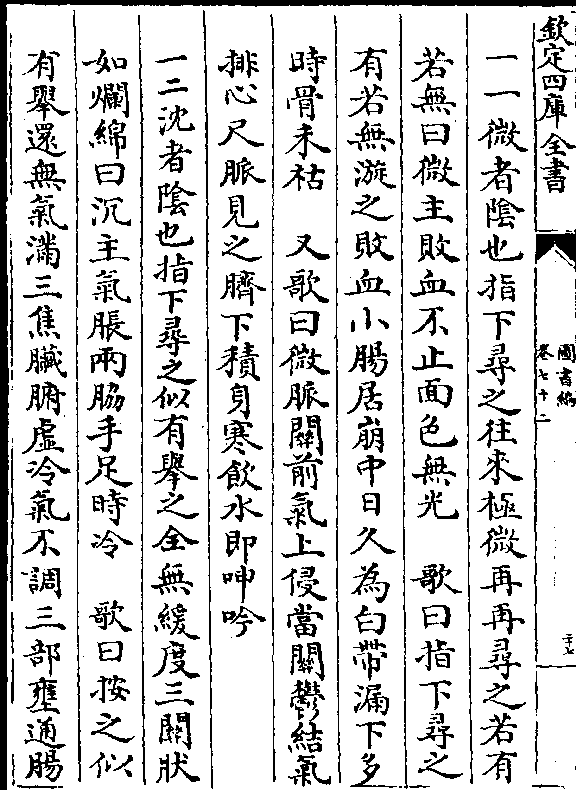 欽定四庫全書
圖書編
卷七十二
一一微者陰也指下尋之往來極微再再尋之若有
若無曰微主敗血不止面色無光　歌曰指下尋之
有若無漩之敗血小腸居崩中日久為白帶漏下多
時骨禾枯　又歌曰微脈關前氣上侵當關鬱結氣
排心尺脈見之臍下積身寒飲水即呻吟
一二沈者陰也指下尋之似有舉之全無緩度三關狀
如爛綿曰沉主氣脹兩脇手足時冷　歌曰按之似
有舉還無氣滿三焦臟腑虛冷氣不調三部壅通腸